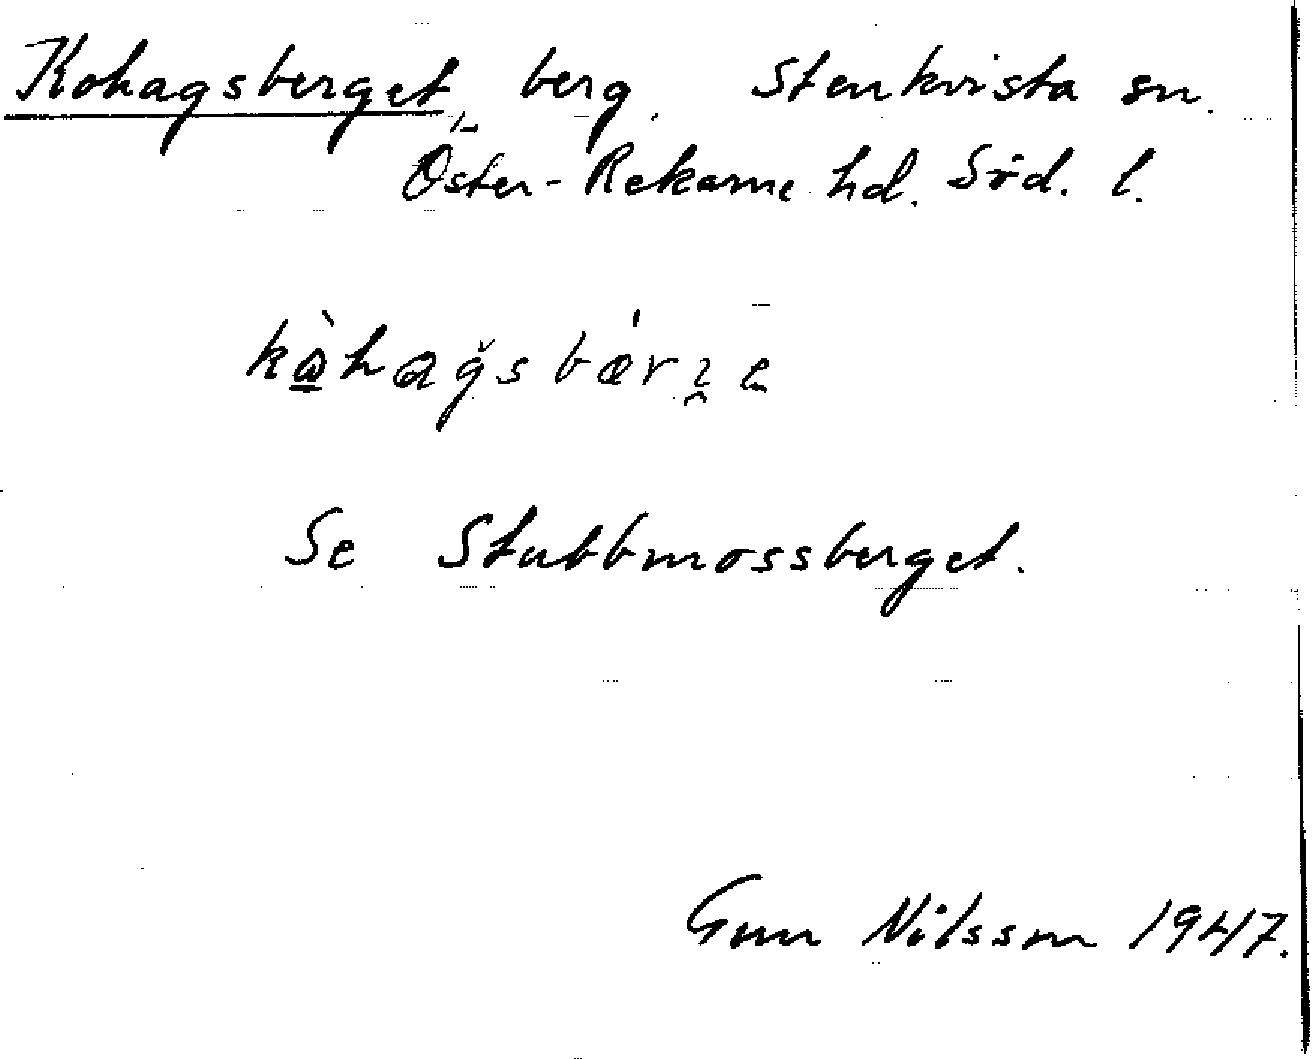 Kohagsberget, berg. Stenkvista sn.
Öster-Rekarne hd. Söd. l.
Se Stubbmossberget.
Gun Nilsson 1947.